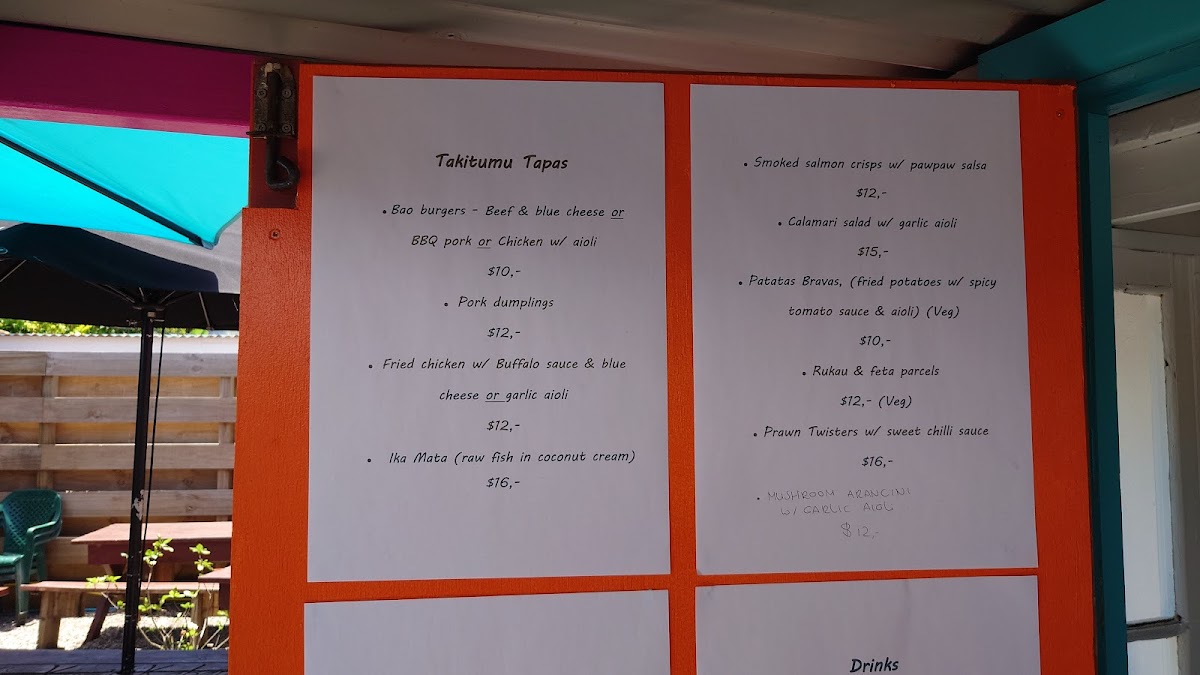 Takitumu Tapas
• Bao burgers - Beef & blue cheese or
BBQ pork or Chicken w/ aioli
$10,-
• Pork dumplings
$12,-
• Fried chicken w/ Buffalo sauce & blue
cheese or garlic aioli
$12,-
• Ika Mata (raw fish in coconut cream)
$16,-
• Smoked salmon crisps w/ pawpaw salsa
$12,-
• Calamari salad w/ garlic aioli
$15,-
• Patatas Bravas, (fried potatoes w/ spicy
tomato sauce & aioli) (Veg)
$10,-
• Rukau & feta parcels
$12,- (Veg)
• Prawn Twisters w/ sweet chilli sauce
$16,-
• MUSHROOM ARANCINI
W/ GARLIC AIOLI
$12,-
Drinks